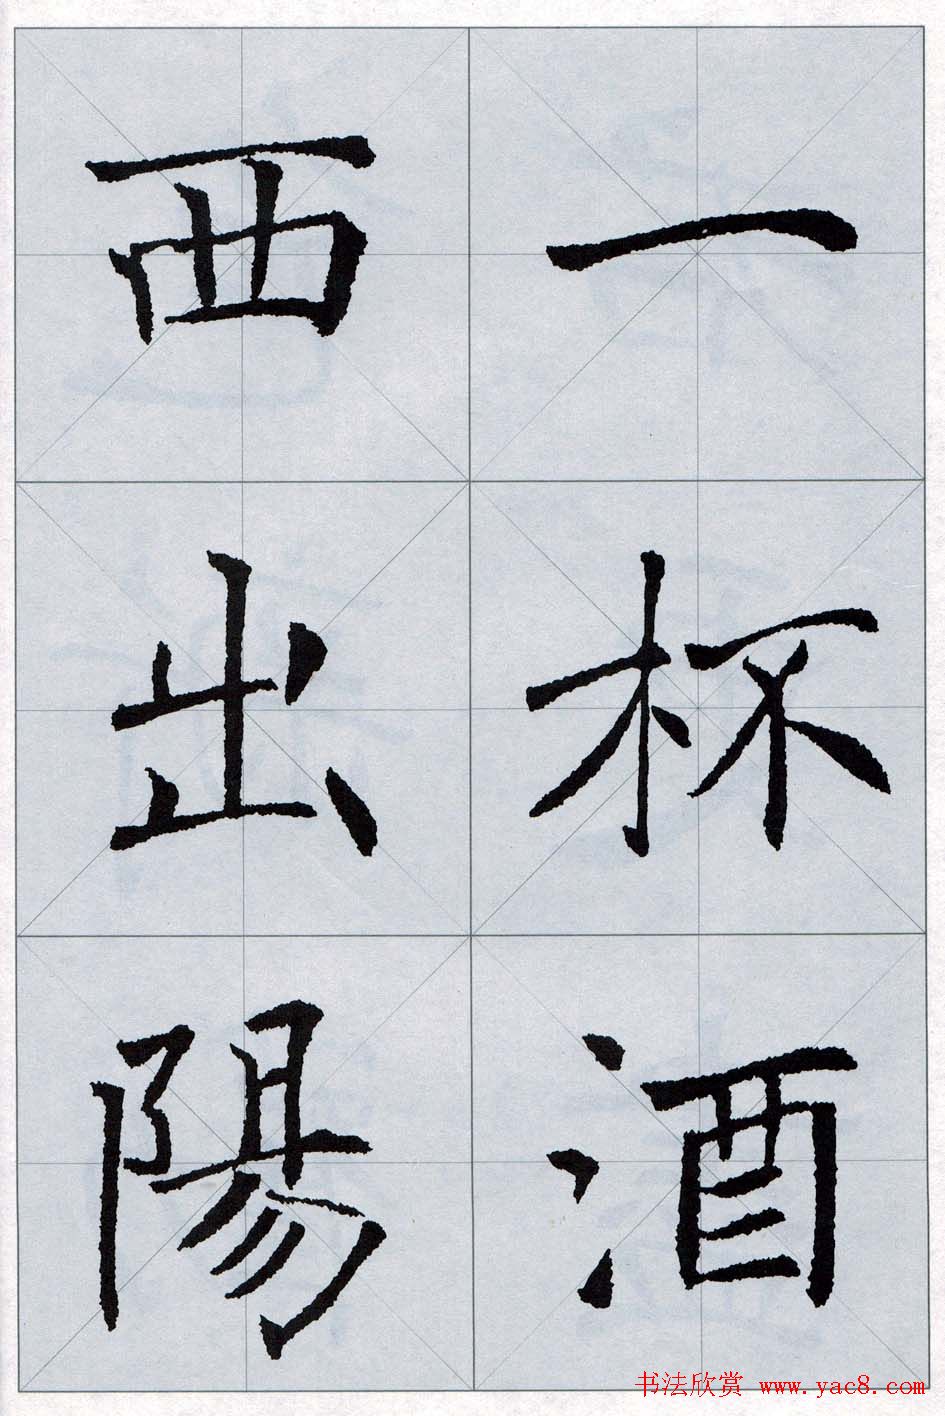 一杯酒
西出陽
书法欣赏 www.yac8.com